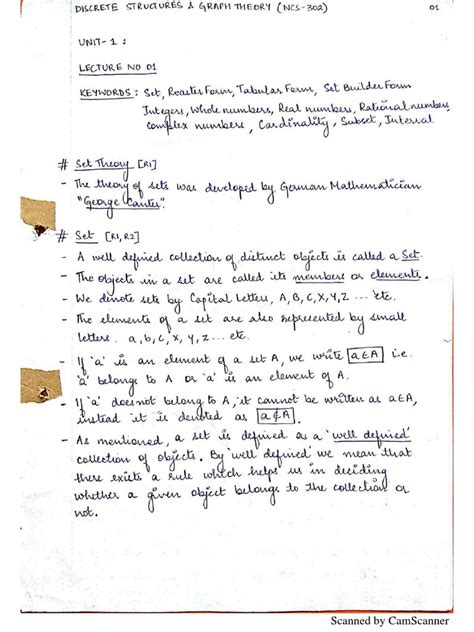 DISCRETE STRUCTURES & GRAPH THEORY (NCS-302) 01
UNIT-1 :
LECTURE NO 01
KEYWORDS : Set, Roaster Form, Tabular Form, Set Builder Form
Integers, Whole numbers, Real numbers, Rational numbers,
Complex numbers, Cardinality, Subset, Interval
# Set Theory [R1]
- The theory of sets was developed by German Mathematician
"George Canter".
# Set [R1, R2]
- A well defined collection of distinct objects is called a Set.
- The objects in a set are called its members or elements.
- We denote sets by Capital letters, A, B, C, X, Y, Z ... etc.
- The elements of a set are also represented by small
letters. a, b, c, x, y, z... etc.
- If 'a' is an element of a set A, we write a∈A i.e.
'a' belongs to A or 'a' is an element of A.
- If 'a' does not belong to A, it cannot be written as a∈A,
instead it is denoted as a∉A.
- As mentioned, a set is defined as a 'well defined'
collection of objects. By 'well defined' we mean that
there exists a rule which helps us in deciding
whether a given object belongs to the collection or
not.
Scanned by CamScanner